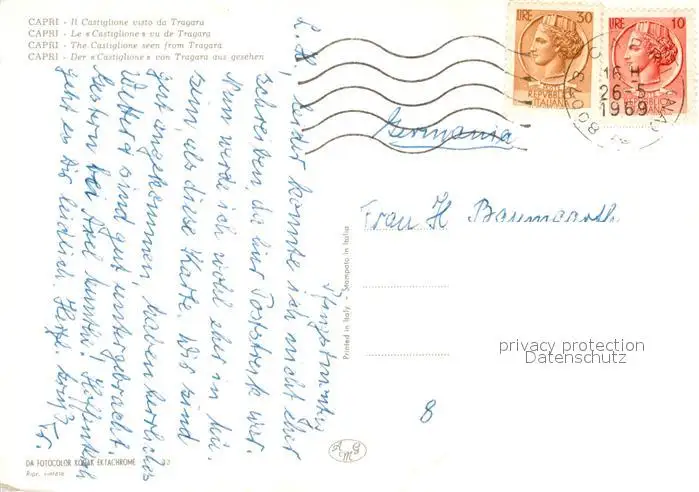 CAPRI - Il Castiglione visto da Tragara
CAPRI - Le « Castiglione » vu de Tragara
CAPRI - The Castiglione seen from Tragara
CAPRI - Der « Castiglione » von Tragara aus gesehen
LIRE 30
REPVBBLICA
ITALIANA
LIRE 10
REPVBBLICA
ITALIANA
16
26-5
1969
80073
Germania
Frau H Baumgarth
8
Printed in Italy - Stampato in Italia
Pfingstmontag
L. H., leider konnte ich nicht eher
schreiben, da hier Poststreik war.
Nun werde ich wohl eher in
sein, als diese Karte. Wir sind
gut angekommen, haben herrliches
Wetter u. sind gut untergebracht.
Gestern bei Axel Munthe! Hoffentlich
geht es Dir leidlich. Herzl. Grüße
Fr.
DA FOTOCOLOR KODAK EKTACHROME
Ripr. vietata
privacy protection
Datenschutz